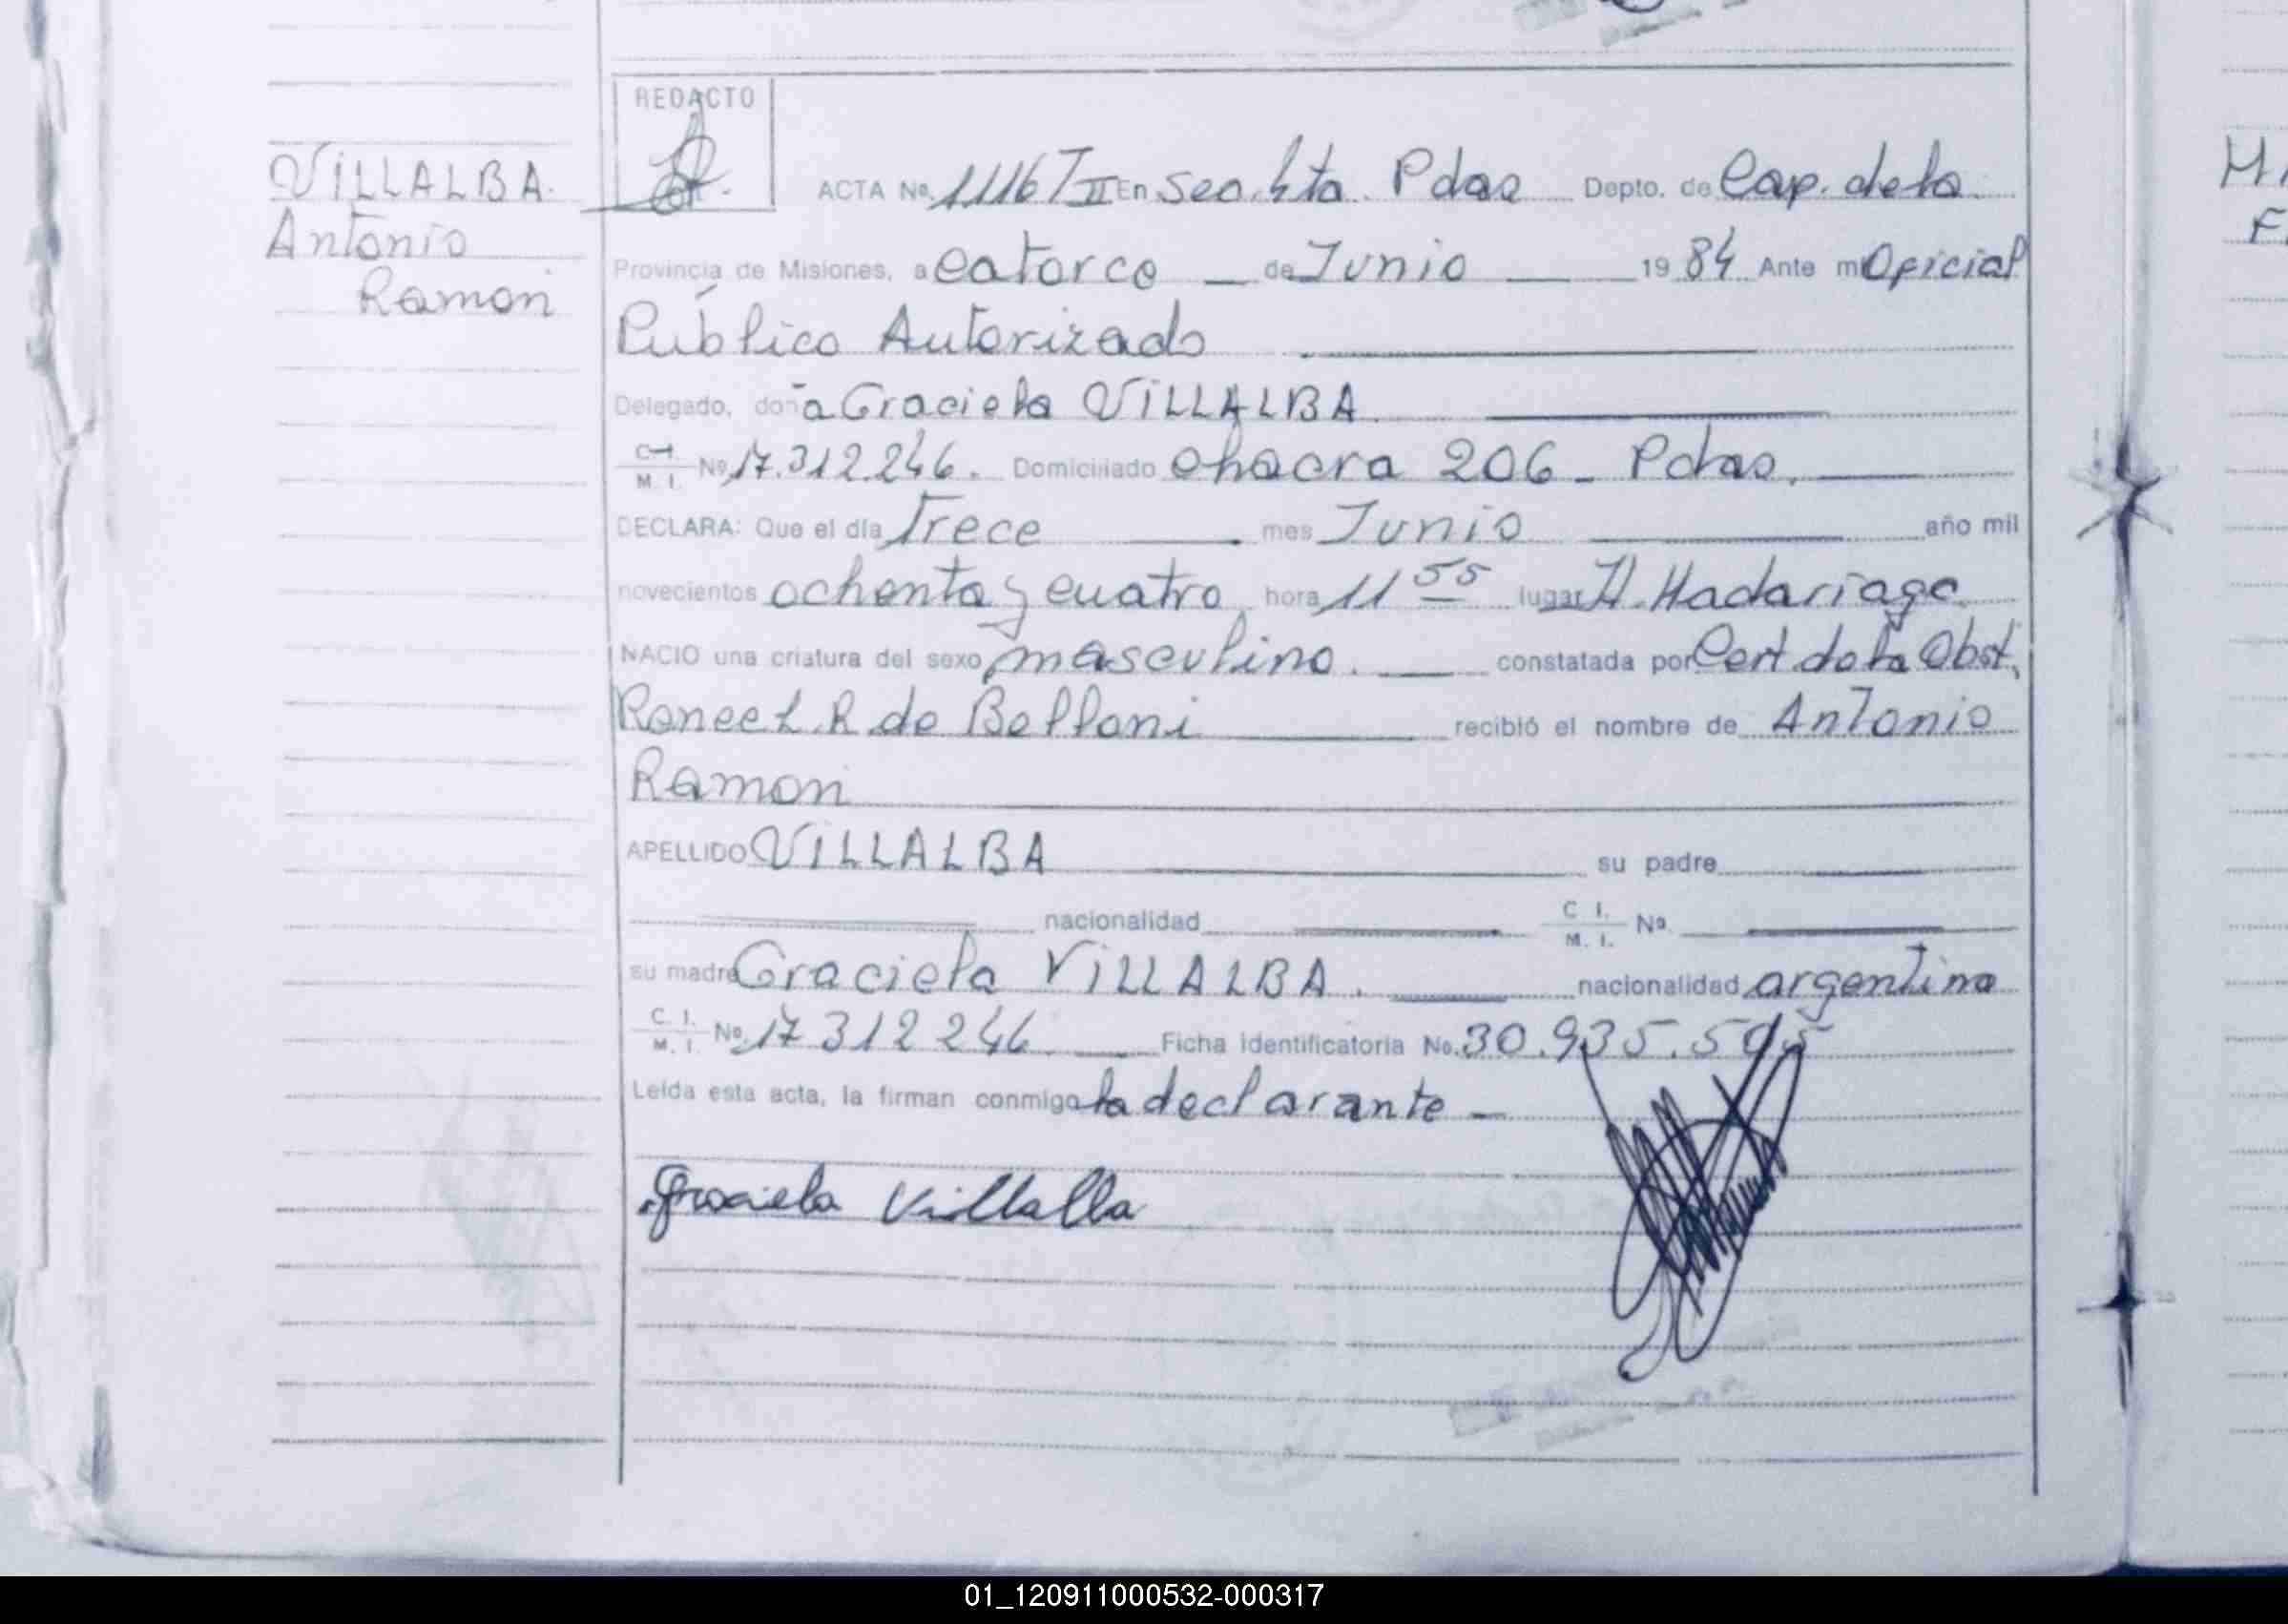 REDACTO
VILLALBA.
Antonio
Ramon
ACTA No. 1116 T II En Sec. 4ta. Pdas Depto. de Cap. de la
Provincia de Misiones, a catorce de Junio 19 84 Ante mi Oficial
Público Autorizado
Delegado, doña Graciela VILLALBA
C.I. M. I. No. 17.312.246. Domiciliado chacra 206 - Pdas.
DECLARA: Que el día Trece mes Junio año mil
novecientos ochenta y cuatro hora 11 55 lugar H. Madariaga
NACIO una criatura del sexo masculino. constatada por Cert de la Obst.
L. R de Belloni recibió el nombre de Antonio
Ramon
APELLIDO VILLALBA su padre
nacionalidad C I. M. I. No.
su madre Graciela VILLALBA. nacionalidad argentina
C. I. M. I. No. 17 312 246 Ficha identificatoria No. 30.935.505
Leída esta acta, la firman conmigo la declarante -
Graciela Villalba
01_120911000532-000317